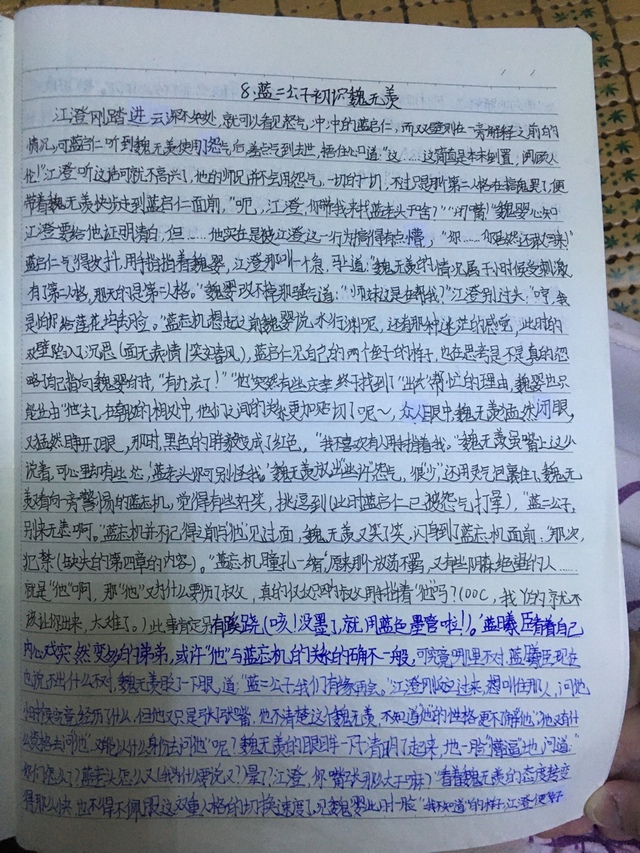 8.蓝二公子初识魏无羡
江澄刚踏进云深不知处,就可以看见怒气冲冲的蓝启仁,而双壁则在一旁解释之前的
情况,可蓝启仁听到魏无羡使用了怨气后差点气到去世,捂住心口道:"这……这简直是本末倒置,罔顾人
伦!"江澄听这话可就不高兴了,他的师兄并不会用怨气,一切的一切,不过只是那第二人格在搞鬼罢了,便
带着魏无羡快步走到蓝启仁面前,"呃,江澄,你带我来找蓝老头干啥?""闭嘴!"魏婴心知
江澄要给他证明清白,但……他实在是被江澄这一行为搞得有点懵,"你……你居然还敢回来!"
蓝启仁气得发抖,用手指指着魏婴,江澄那叫一个急,马上道:"魏无羡的情况属于小时候受刺激,
有了第二人格,那天的是第二人格。"魏婴改不掉那骚气道:"师妹这是在帮我?"江澄别过头:"哼,我
是怕你给莲花坞丢脸。"蓝忘机想起之前魏婴说水行渊呢,还有那种迷茫的感觉,此时的
双壁陷入了沉思(面无表情|笑如春风),蓝启仁见自己的两个侄子的样子,也在思考是不是真的忽
略了自己指向魏婴的手,"有办法了!""他"突然有些庆幸终于找到了"出头"帮忙的理由,魏婴也只
能出由"他"去了,在朝夕的相处中,他们之间的关系更加密切了呢~,众人眼中魏无羡猛然闭眼,
又猛然睁开了眼,那时,黑色的眸貌变成了红色,"我不喜欢有人用手指着我。"魏无羡虽嘴上这么
说着,可心里却有些怂,"蓝老头你可别怪我。"魏无羡放出些许怨气,"很少"还用灵气包裹住,魏无
羡看向一旁警惕的蓝忘机,觉得有些好笑,挑逗到(此时蓝启仁已被怨气打晕),"蓝二公子,
别来无恙啊。"蓝忘机并不记得之前与"他"见过面,魏无羡又笑了笑,闪身到了蓝忘机面前:"那次,
犯禁(缺失的第四章的内容)。"蓝忘机瞳孔一缩,原来那个放荡不羁,又有些阴森绝望的人……
就是"他"啊,那"他"又为什么要伤了叔父,真的仅仅只因为叔父用手指着"他"吗?(OOC,我
该让你出来,太难了。)此事肯定另有蹊跷,(咳!没墨了,就用蓝色墨宫啦!)。"蓝曦臣看着自己
内心戏突然变多的弟弟,或许"他"与蓝忘机的关系的确不一般,可究竟哪里不对,蓝曦臣现在
也说不出什么不对,魏无羡眨了一下眼,道:"蓝二公子,我们有缘再会。"江澄刚反应过来,想叫住那人,问他
经历了什么,但他又只是张了张嘴,他不清楚这个魏无羡,不知道"他"的性格更不了解"他","他又有什
么资格去问"他",又能以什么身份去问"他"呢?魏无羡的眼眸一下清明了起来,他一脸"懵逼"地问道:"
你们怎么了?蓝老头怎么又(我为什么要说又?)晕了?江澄,你嘴张那么大干嘛?"看着魏无羡的态度转变
得那么快,也不得不佩服这双重人格的切换速度了,见魏婴此时一脸"我不知道"的样子,江澄便好